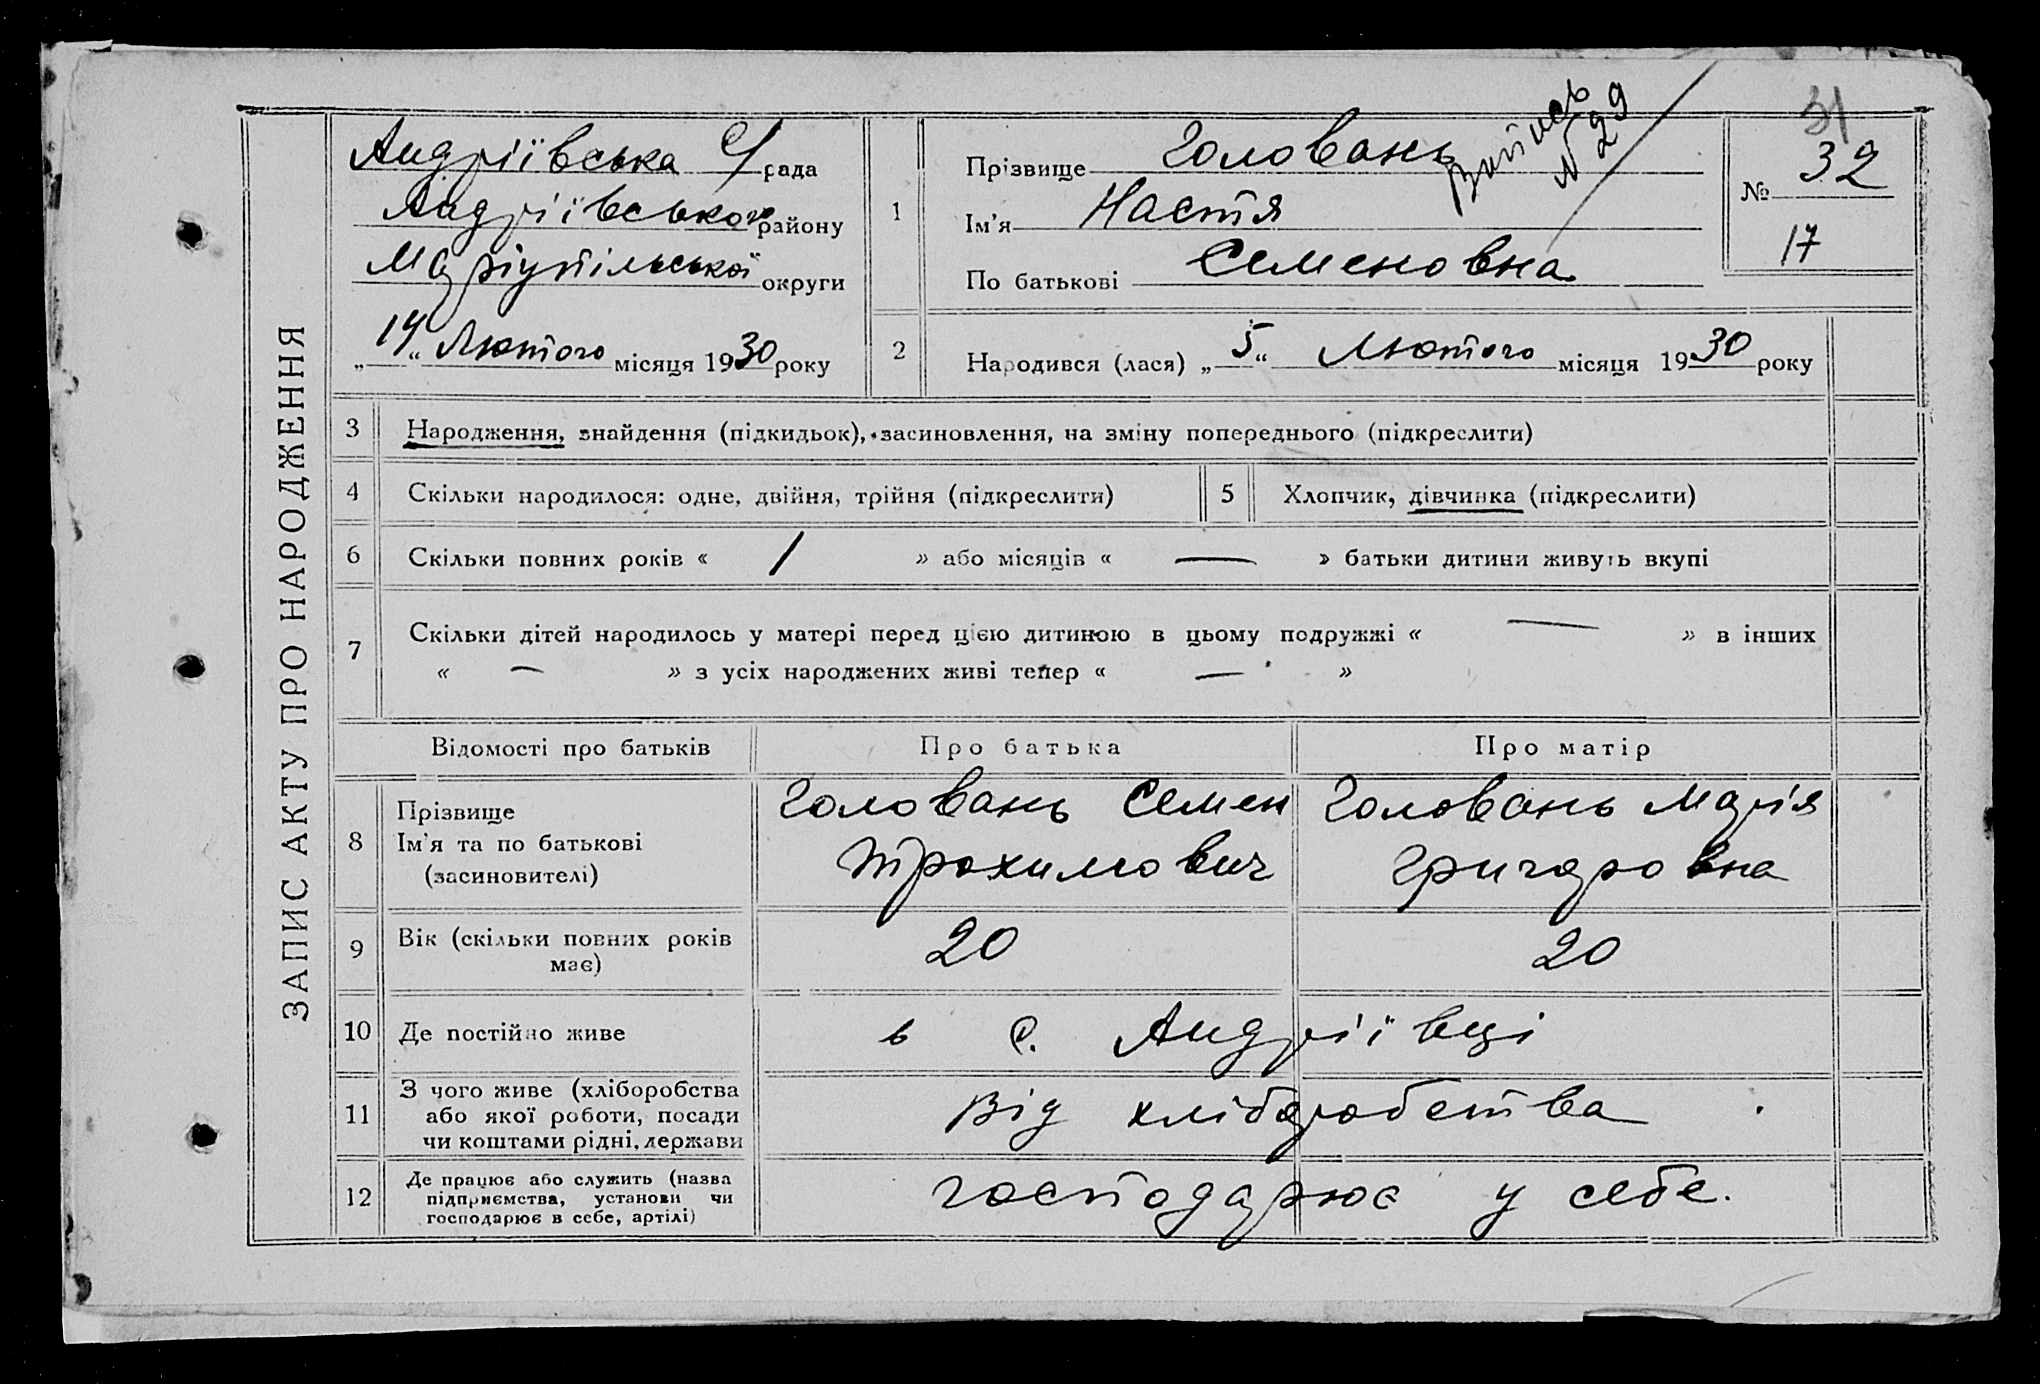 ЗАПИС АКТУ ПРО НАРОДЖЕННЯ
Андріївська С/рада
Андріївського району
Маріупільської округи
„14“ Лютого місяця 1930 року
1
Прізвище Головань
Ім'я Настя
По батькові Семеновна
Витись
№ 29
31
№ 32
17
2 Народився (лася) „5“ Лютого місяця 1930 року
3 Народження, знайдення (підкидьок), засиновлення, на зміну попереднього (підкреслити)
4 Скільки народилося: одне, двійня, трійня (підкреслити)
5 Хлопчик, дівчинка (підкреслити)
6 Скільки повних років « 1 » або місяців « — » батьки дитини живуть вкупі
7 Скільки дітей народилось у матері перед цією дитиною в цьому подружжі « — » в інших
« — » з усіх народжених живі тепер « — »
Відомості про батьків Про батька Про матір
8 Прізвище
Ім'я та по батькові
(засиновителі)
Головань Семен
Трохимович
Головань Марія
Григоровна
9 Вік (скільки повних років
має)
20
20
10 Де постійно живе в с. Андріївці
11 З чого живе (хліборобства
або якої роботи, посади
чи коштами рідні, держави
Від хліборобства
12 Де працює або служить (назва
підприємства, установи чи
господарює в себе, артілі)
господарює у себе.